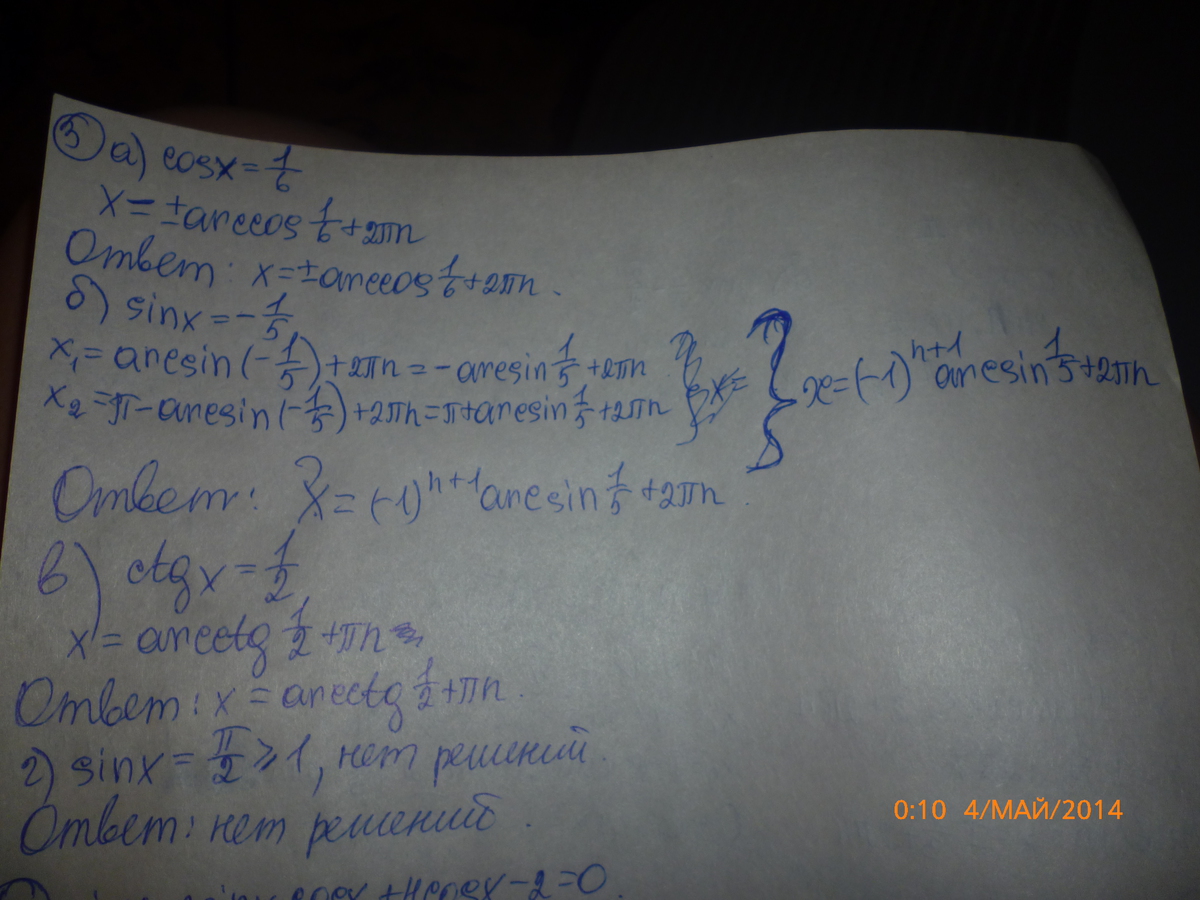 ③ а) cosx = 1/6
x = ±arccos 1/6 + 2πn
Ответ: x = ±arccos 1/6 + 2πn.
б) sinx = -1/5
x₁ = arcsin(-1/5) + 2πn = -arcsin 1/5 + 2πn
x₂ = π - arcsin(-1/5) + 2πn = π + arcsin 1/5 + 2πn } x = (-1)ⁿ⁺¹ arcsin 1/5 + 2πn
Ответ: x = (-1)ⁿ⁺¹ arcsin 1/5 + 2πn.
в) ctgx = 1/2
x = arcctg 1/2 + πn
Ответ: x = arcctg 1/2 + πn.
г) sinx = π/2 ⩾ 1, нет решений.
Ответ: нет решений.
cosx + 4cosx - 2 = 0.
0:10 4/МАЙ/2014